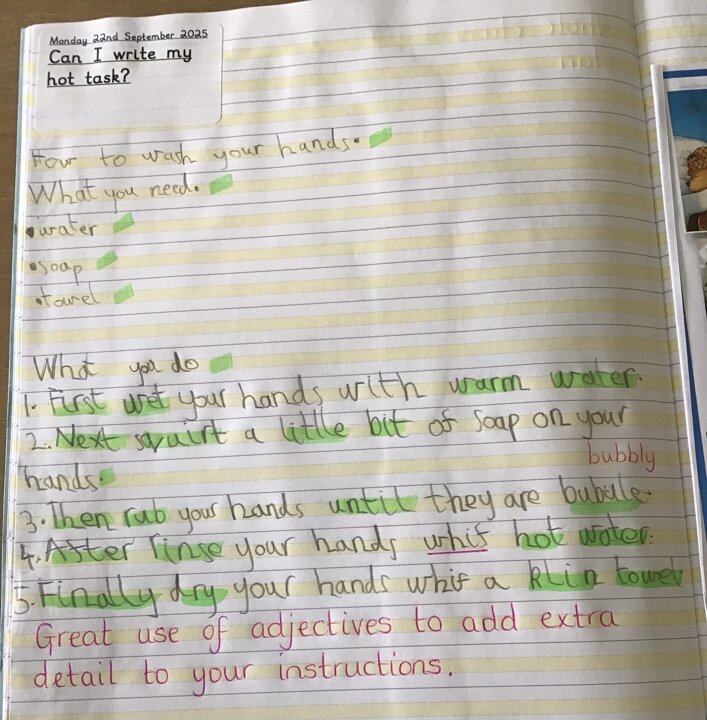 Monday 22nd September 2025
Can I write my
hot task?
How to wash your hands.
What you need.
•water
•soap
•towel
What you do
1. First wet your hands with warm water.
2. Next squirt a little bit of soap on your
bubbly
hands.
3. Then rub your hands until they are bubule.
4. After rinse your hands whif hot water.
5. Finally dry your hands whif a klin towel
Great use of adjectives to add extra
detail to your instructions.